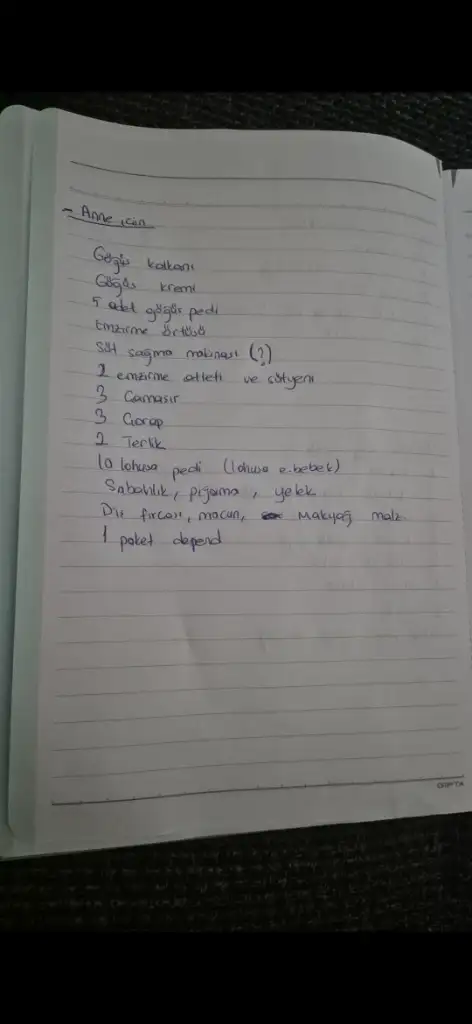 - Anne için
Göğüs kalkanı
Göğüs kremi
5 adet göğüs pedi
Emzirme örtüsü
Süt sağma makinası (?)
2 emzirme atleti ve sütyeni
3 Çamaşır
3 Çorap
2 Terlik
10 lohusa pedi (lohusa e.bebek)
Sabahlık, pijama, yelek
Diş fırçası, macun, Makyağ malz
1 paket depend